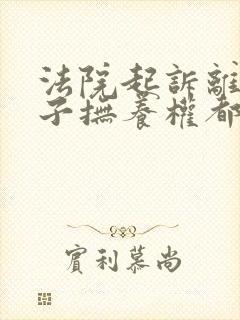 法院起訴離
子撫養權都
實利慕尚